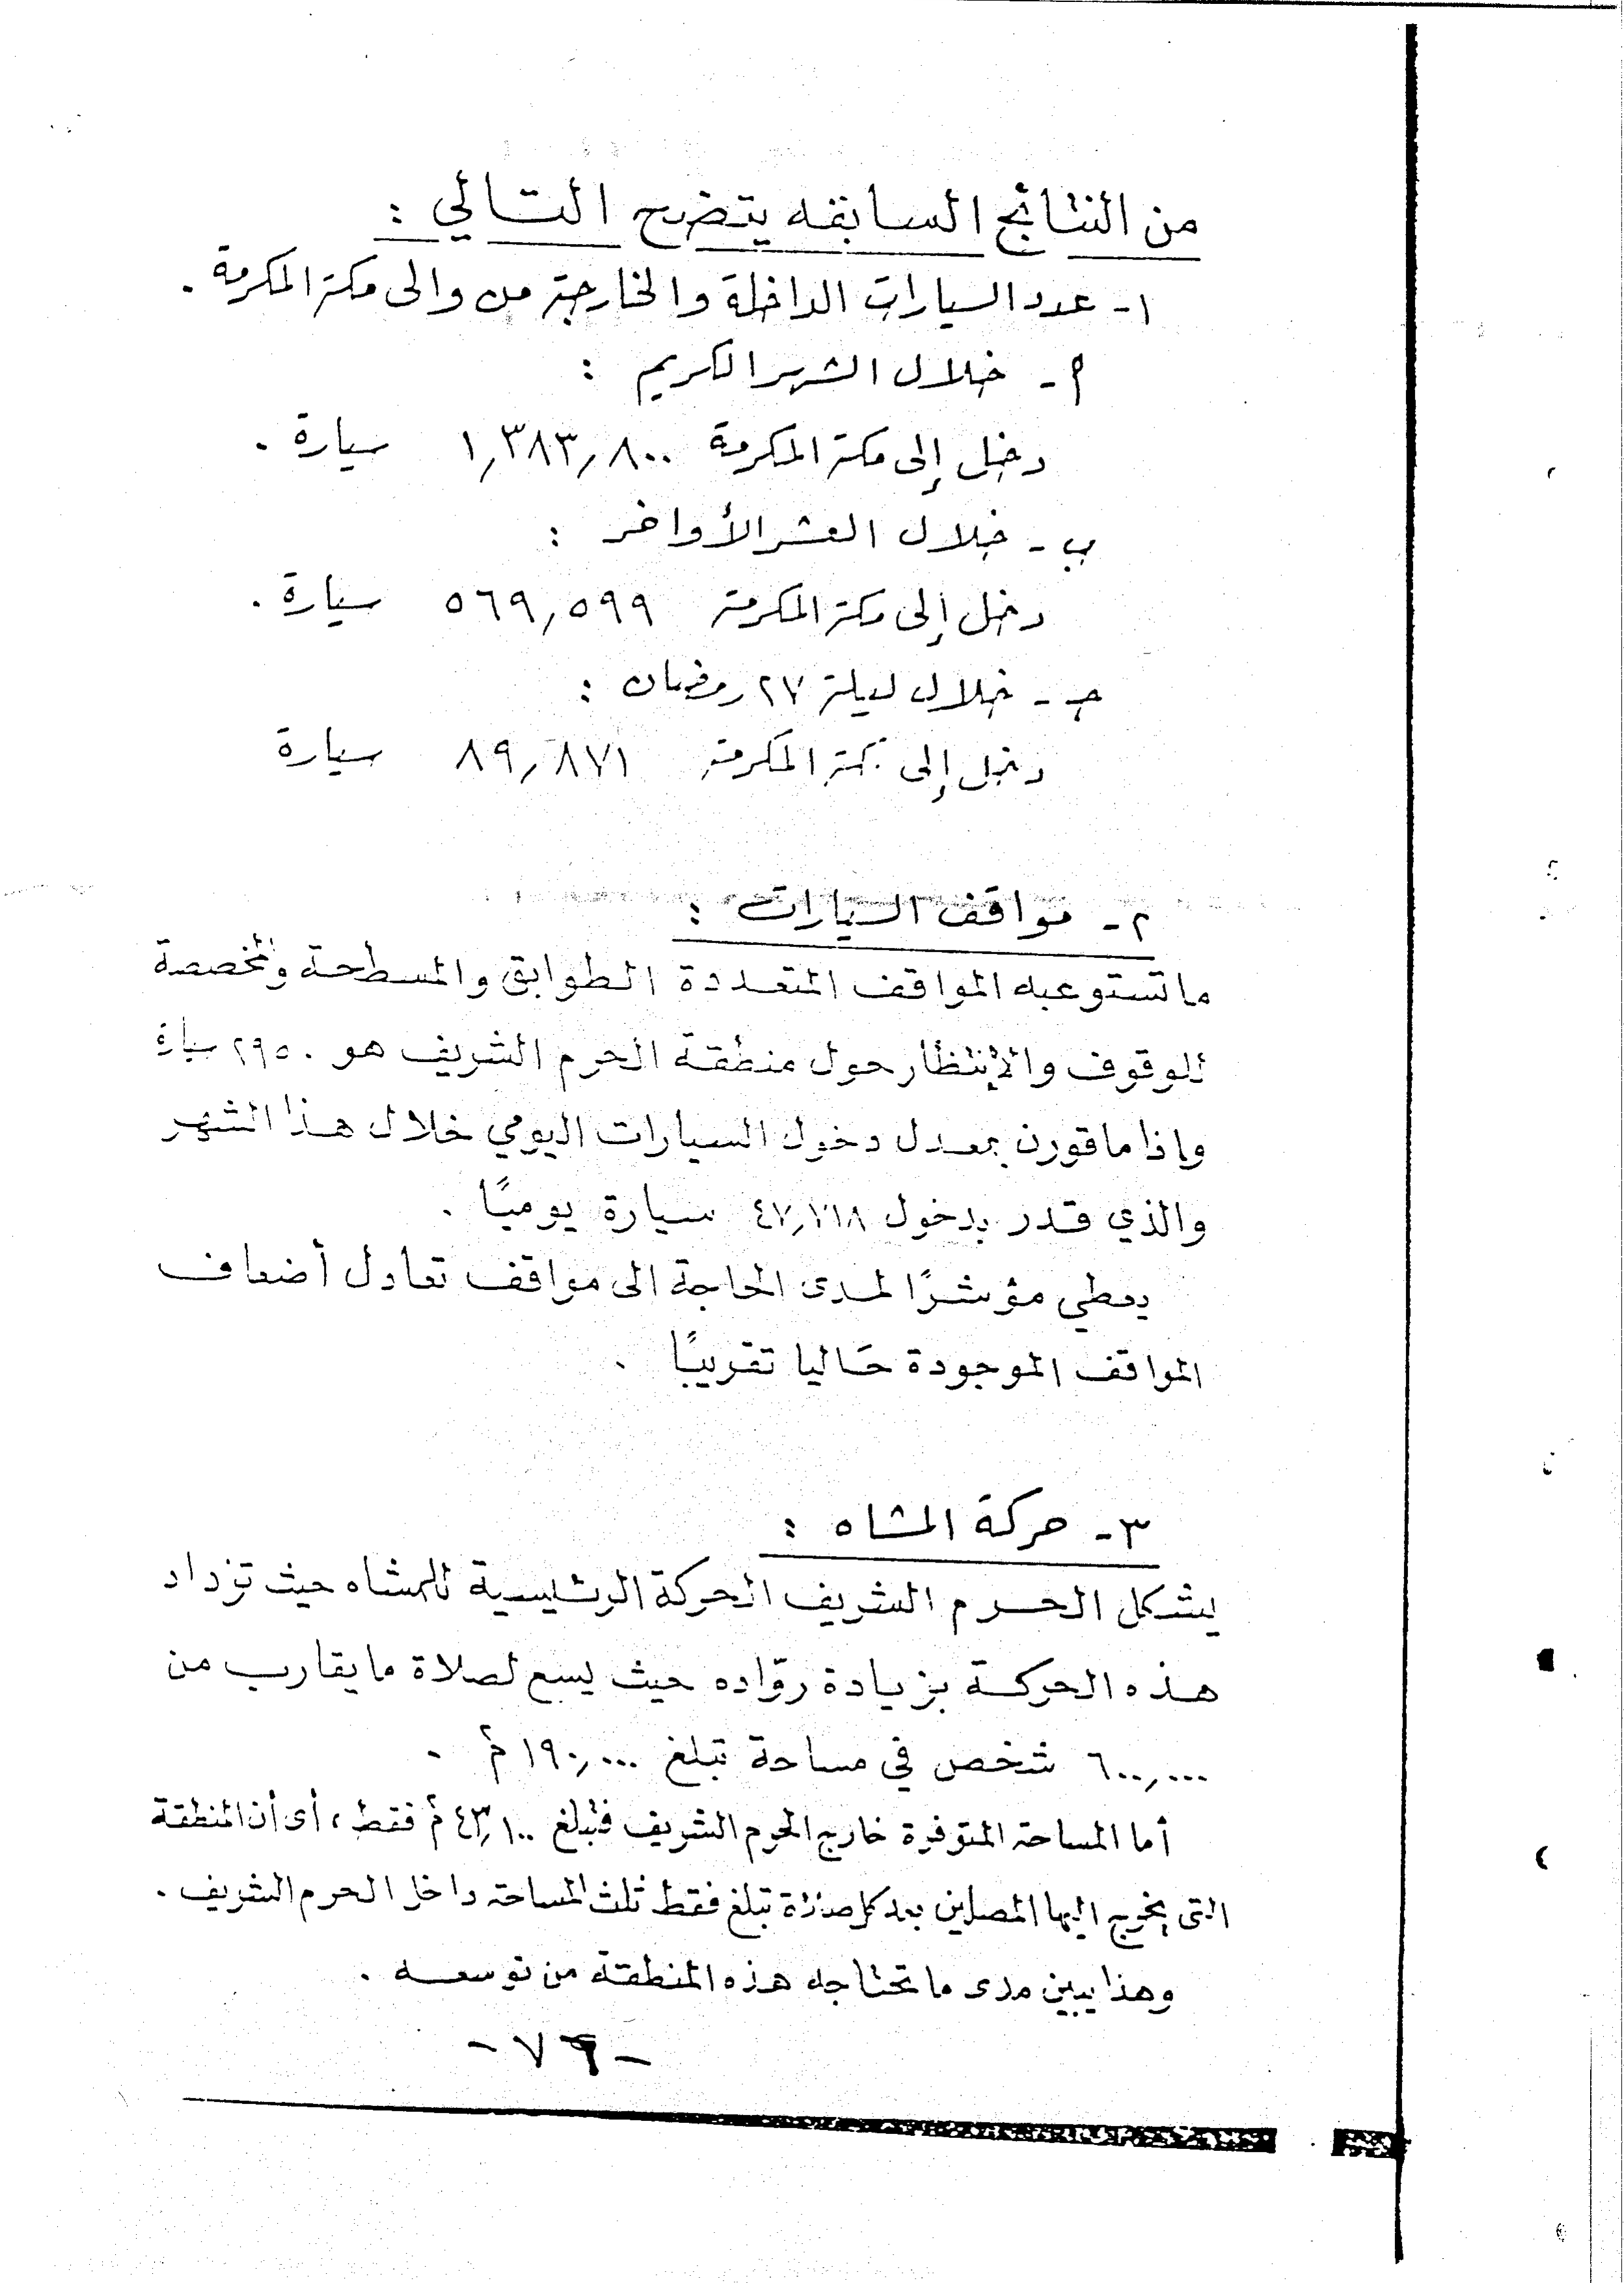 من النتائج السابقه يتضح التالي :
١- عدد السيارات الداخلة والخارجة من والى مكة المكرمة .
أ - خلال الشهر الكريم :
دخل إلى مكة المكرمة ١,٣٨٣,٨٠٠ سيارة .
ب - خلال العشر الأواخر :
دخل إلى مكة المكرمة ٥٦٩,٥٩٩ سيارة .
جـ - خلال ليلة ٢٧ رمضان :
دخل إلى مكة المكرمة ٨٩,٨٧١ سيارة
٢- مواقف السيارات :
ما تستوعبه المواقف المتعددة الطوابق والمسطحة والمخصصة
للوقوف والإنتظار حول منطقة الحرم الشريف هو ٢٩٥٠ سيارة
وإذا ما قورن بمعدل دخول السيارات اليومي خلال هذا الشهر
والذي قدر بدخول سيارة يوميًا .
يعطي مؤشرًا لمدى الحاجة الى مواقف تعادل أضعاف
المواقف الموجودة حَاليا تقريبًا .
٣- حركة المشاه :
يشكل الحرم الشريف الحركة الرئيسية للمشاه حيث تزداد
هذه الحركة بزيادة روّاده حيث يسع لصلاة ما يقارب من
٦٠٠,٠٠٠ شخص في مساحة تبلغ ١٩٠,٠٠٠ م٢ .
أما المساحة المتوفرة خارج الحرم الشريف فتبلغ ٤٣,١٠٠ م٢ فقط ، أى أن المنطقة
التى يخرج اليها المصلين بعد كل صلاة تبلغ فقط ثلث المساحة داخل الحرم الشريف .
وهذا يبين مدى ما تحتاجه هذه المنطقة من توسعه .
- ٧٩ -